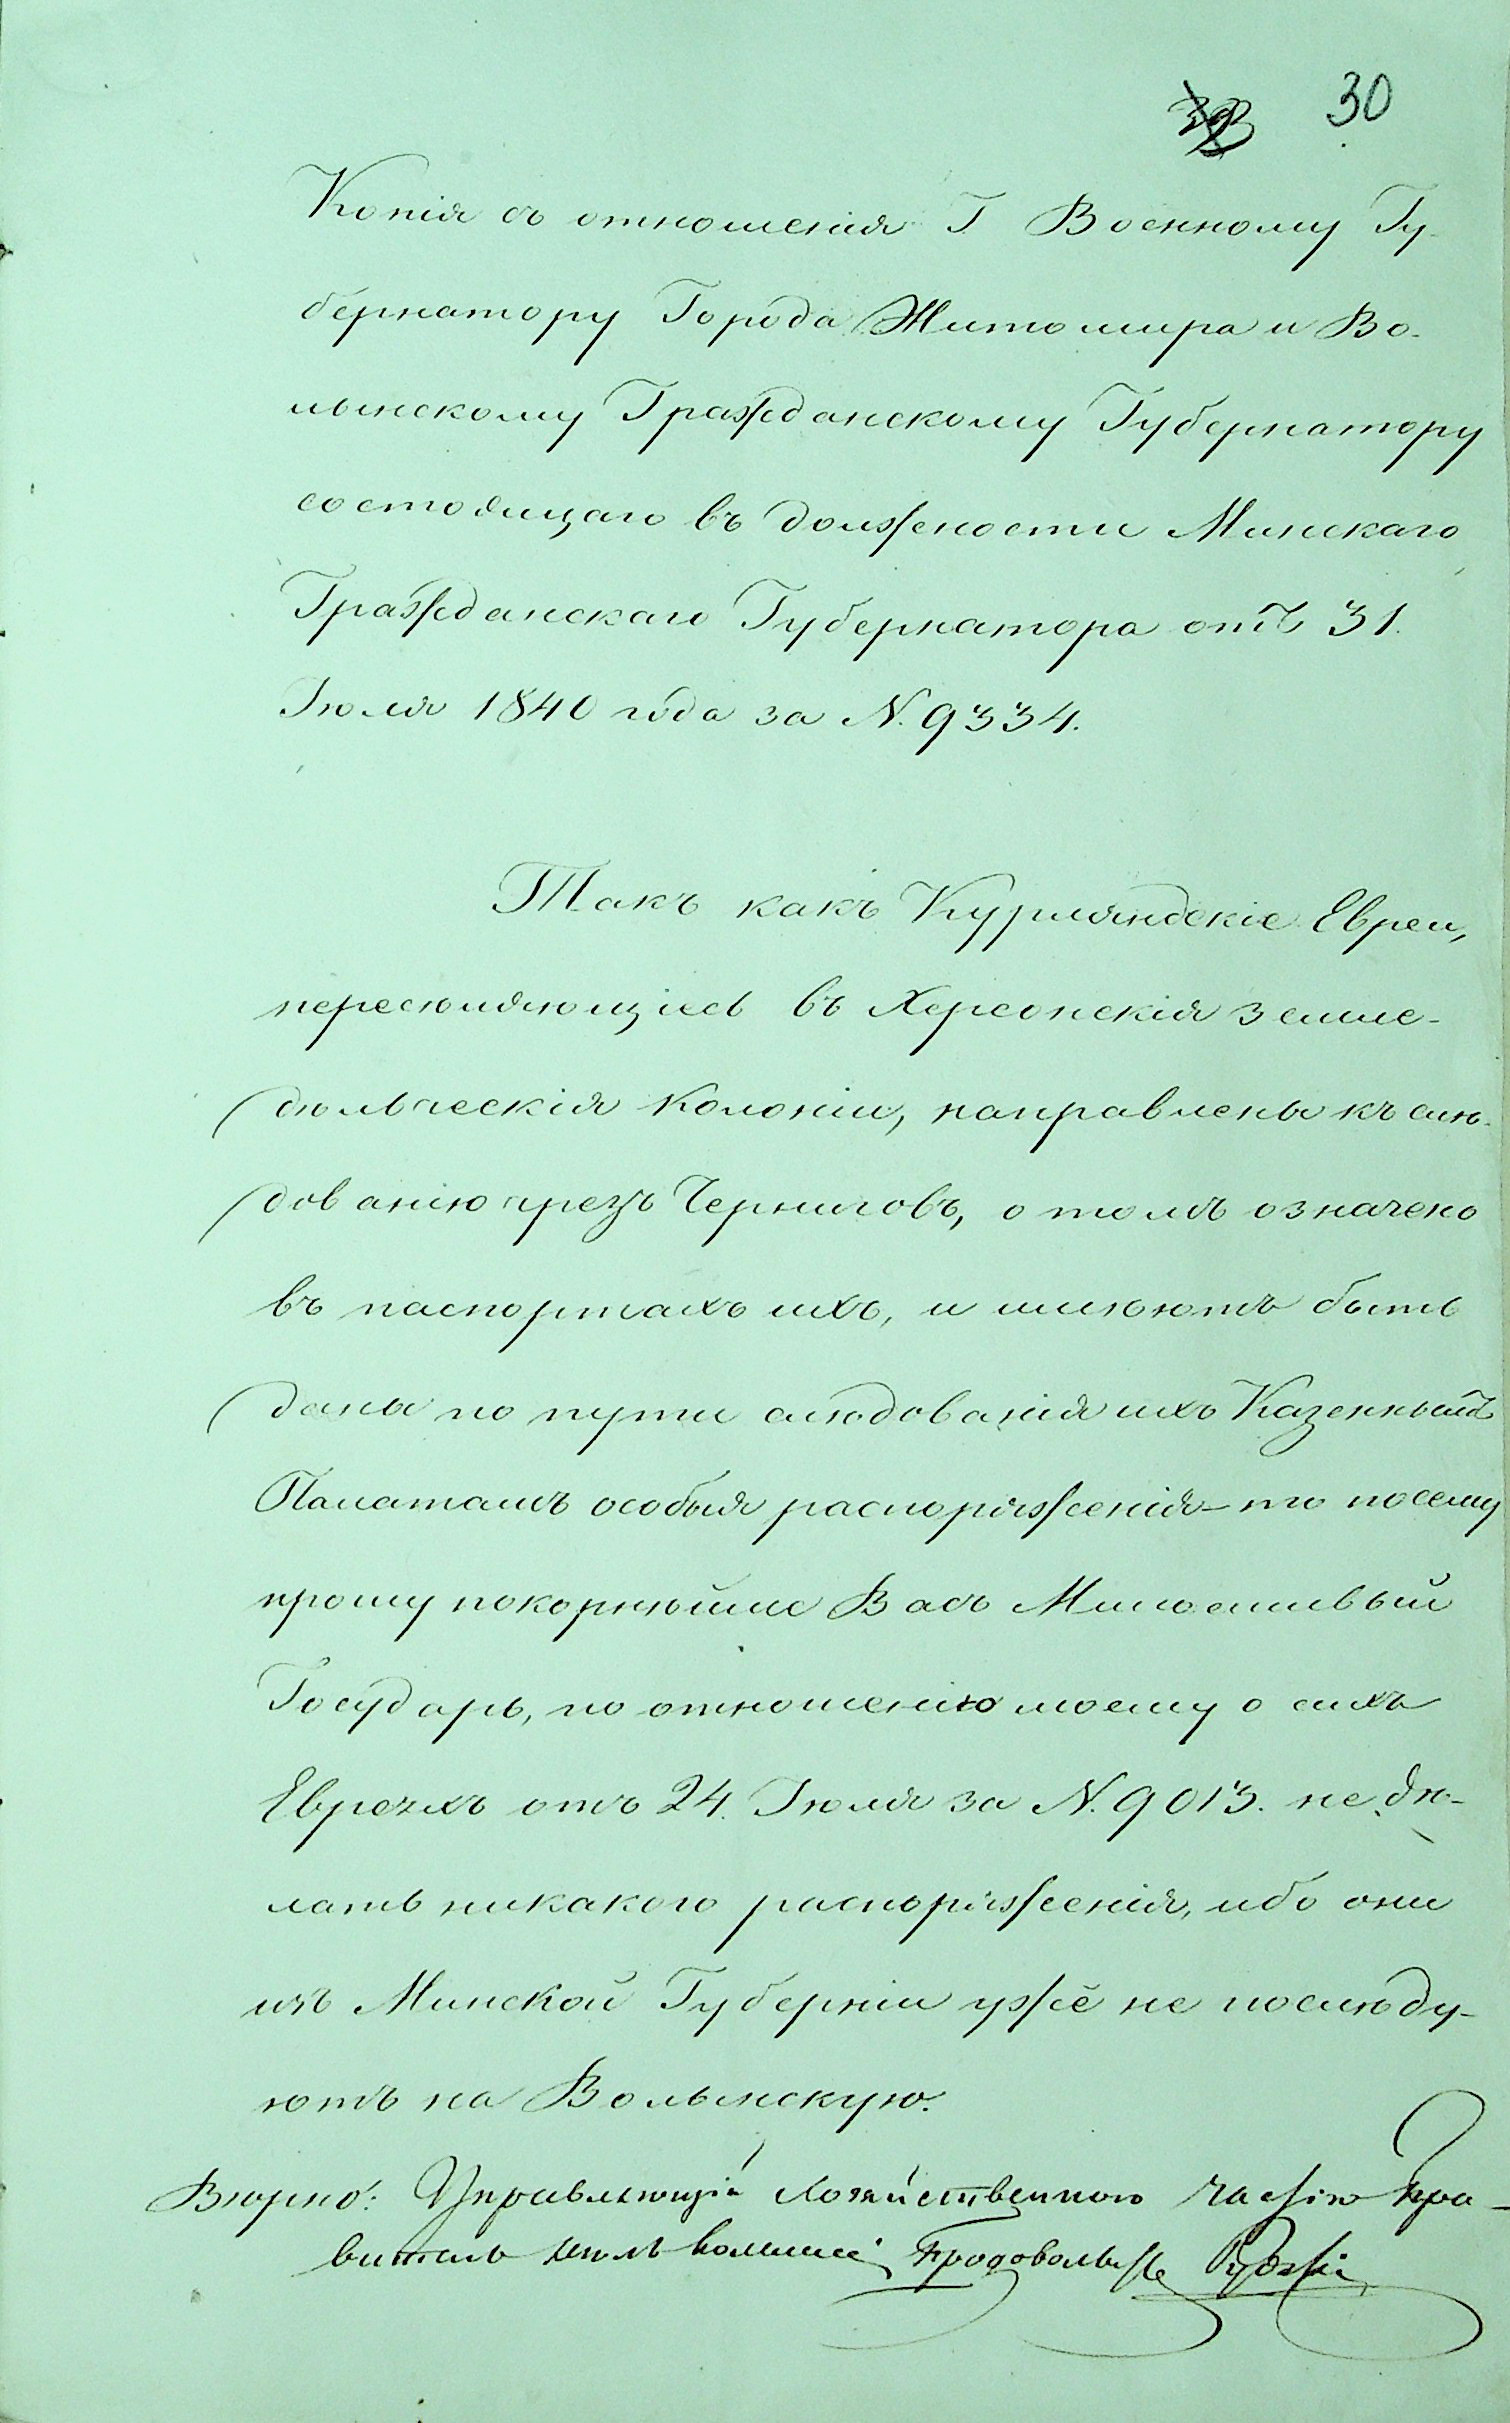 30
Копія съ отношенія Г. Военному Гу-
бернатору Города Житомира и Во-
лынскому Гражданскому Губернатору
состоящаго въ должности Минскаго
Гражданскаго Губернатора отъ 31.
Іюля 1840 года за N. 9334.
Такъ какъ Курляндскіе Евреи,
переселяющіесь въ Херсонскія земле-
дѣльческія колоніи, направлены къ слѣ-
дованію чрезъ Черниговъ, о томъ означено
въ паспортахъ ихъ, и имѣютъ быть
даны по пути слѣдованія ихъ Казеннымъ
Палатамъ особыя распоряженія – то посему
прошу покорнѣйше Васъ Милостивый
Государь, по отношенію моему о сихъ
Евреяхъ отъ 24. Іюля за N. 9013. не дѣ-
лать никакого распоряженія, ибо они
изъ Минской Губерніи уже не послѣду-
ютъ на Волынскую.
Вѣрно: Управляющій Хозяйственною частію Пра-
витель